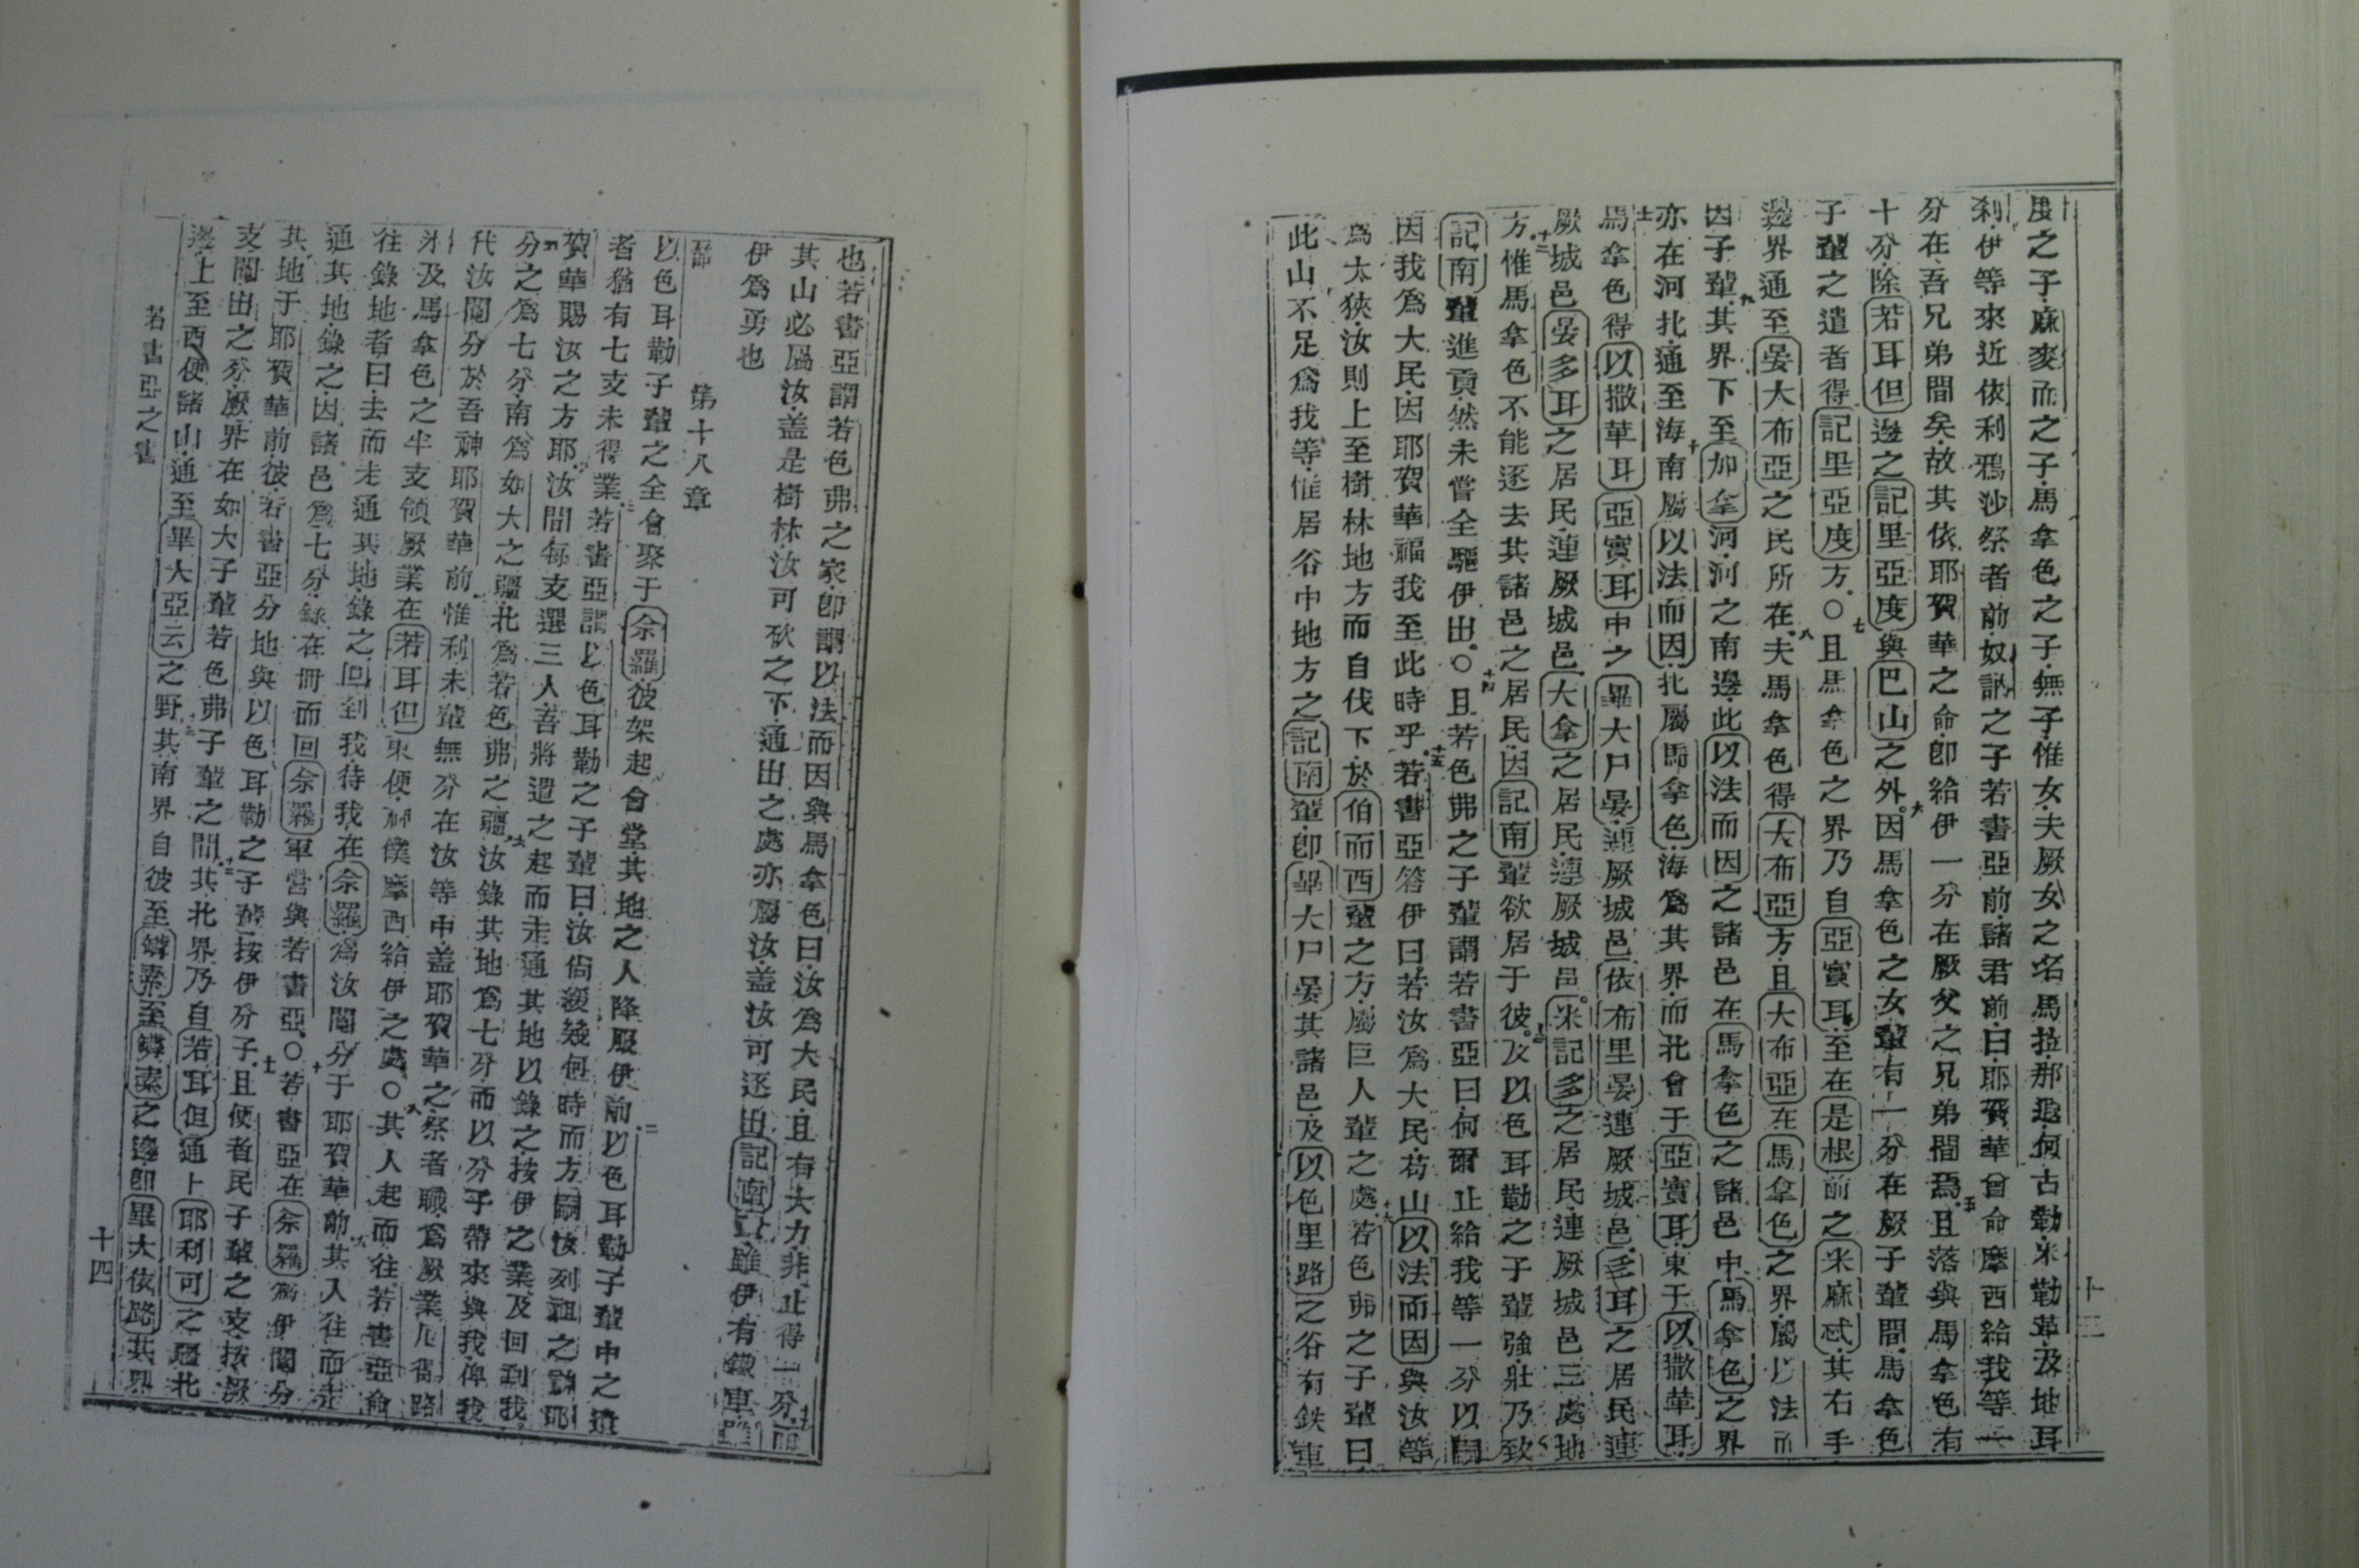 度之子麻麥而之子馬拿色之子無子惟女夫厥女之名馬拉那遐何古勒米勒革及地耳
剎伊等來近依利鴉沙祭者前奴訥之子若書亞前諸君前曰耶賀華曾命摩西給我等一
分在吾兄弟間矣故其依耶賀華之命即給伊一分在厥父之兄弟間焉五且落與馬拿色有
十分除若耳但邊之記里亞度與巴山之外六因馬拿色之女輩有一分在厥子輩間馬拿色
子輩之遺者得記里亞度方〇七且馬拿色之界乃自亞實耳至在是根前之米麻忒其右手
邊界通至晏大布亞之民所在八夫馬拿色得大布亞方且大布亞在馬拿色之界屬以法而
因子輩九其界下至加拿河河之南邊此以法而因之諸邑在馬拿色之諸邑中馬拿色之界
亦在河北通至海十南屬以法而因北屬馬拿色海為其界而北會于亞實耳東于以撒革耳
十一馬拿色得以撒革耳亞實耳中之畢大尸晏連厥城邑依布里晏連厥城邑多耳之居民連
厥城邑晏多耳之居民連厥城邑大拿之居民連厥城邑米記多之居民連厥城邑三處地
方十二惟馬拿色不能逐去其諸邑之居民因記南輩欲居于彼十三及以色耳勒之子輩強壯乃致
記南輩進貢然未嘗全驅伊出〇十四且若色弗之子輩謂若書亞曰何爾止給我等一分以嗣
因我為大民因耶賀華福我至此時乎十五若書亞答伊曰若汝為大民苟山以法而因與汝等
為太狹汝則上至樹林地方而自伐下於伯而西輩之方屬巨人輩之處十六若色弗之子輩曰
此山不足為我等惟居谷中地方之記南輩即畢大尸晏其諸邑及以色里路之谷有鉄車
也若書亞謂若色弗之家即謂以法而因與馬拿色曰汝為大民且有大力非止得一分
其山必屬汝蓋是樹林汝可砍之下通出之處亦屬汝蓋汝可逐出記南輩雖伊有鐵車
伊為勇也
第十八章
以色耳勒子輩之全會聚于佘羅彼架起會堂其地之人降服伊前二以色耳勒子輩中之遺
者猶有七支未得業三若書亞謂以色耳勒之子輩曰汝尚緩幾何時而方嗣汝列祖之神耶
賀華賜汝之方耶四汝間每支選三人吾將遣之起而走通其地以錄之按伊之業及回到我
五分之為七分南為如大之疆北為若色弗之疆六汝錄其地為七分而以分子帶來與我俾我
代汝鬮分於吾神耶賀華前七惟利未輩無分在汝等中蓋耶賀華之祭者職為厥業厄得路
米及馬拿色之半支領厥業在若耳但東便神僕摩西給伊之處〇八其人起而往若書亞命
往錄地者曰去而走通其地錄之回到我待我在佘羅為汝鬮分于耶賀華前九其人往而走
通其地錄之因諸邑為七分錄在冊而回佘羅軍營與若書亞〇十若書亞在佘羅為伊鬮分
其地于耶賀華前彼若書亞分地與以色耳勒之子輩按伊分子十一且便者民子輩之支按厥
支鬮出之分厥界在如大子輩若色弗子輩之間十二其北界乃自若耳但通上耶利可之疆北
邊上至西便諸山通至畢大亞云之野十三其南界自彼至之邊即畢大依路其界
若書亞之書
十四